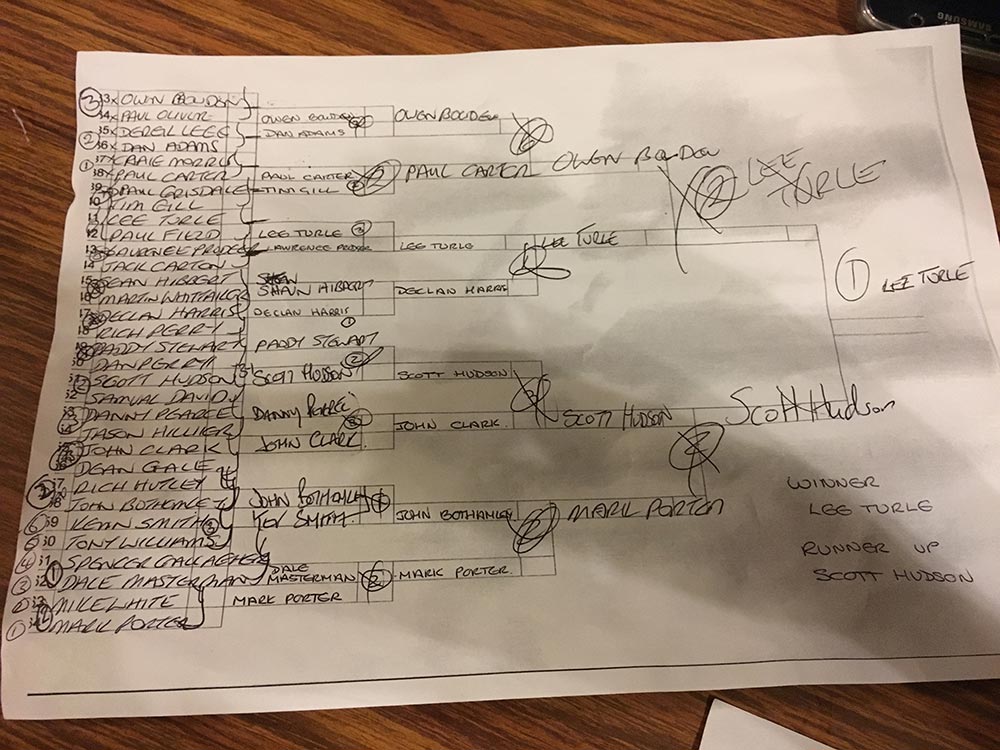 SAMSUNG
OWEN BOUDEN
PAUL OLIVER
DEREK LEES
DAN ADAMS
CRAIG MORRIS
PAUL CARTER
PAUL GRISDALE
TIM GILL
LEE TURLE
PAUL FIELD
LAURENCE PRODGER
JACK CARTON
SEAN HIBBERT
MARTIN
DECLAN HARRIS
RICH PERRY
PADDY STEWART
DAN PERRY
SCOTT HUDSON
SAMUAL DAVID
DANNY PEARCE
JASON HILLIER
JOHN CLARK
DEAN GALE
RICH HUTLEY
JOHN BOTHAMLEY
KEVIN SMITH
TONY WILLIAMS
SPENCER GALLAGHER
DALE MASTERMAN
MIKE WHITE
MARK PORTER
OWEN BOUDEN
DAN ADAMS
PAUL CARTER
TIM GILL
LEE TURLE
LAWRENCE
SHAUN HIBBERT
DECLAN HARRIS
PADDY STEWART
SCOTT HUDSON
DANNY
JOHN CLARK.
JOHN BOTHAMLEY
KEV SMITH.
DALE
MASTERMAN
MARK PORTER
OWEN BOUDEN
PAUL CARTER
LEE TURLE
DECLAN HARRIS
SCOTT HUDSON
JOHN CLARK.
JOHN BOTHAMLEY
MARK PORTER.
OWEN BOUDEN
LEE TURLE
SCOTT HUDSON
MARK PORTER
2 LEE
TURLE
Scott Hudson
1 LEE TURLE
WINNER
LEE TURLE
RUNNER UP
SCOTT HUDSON